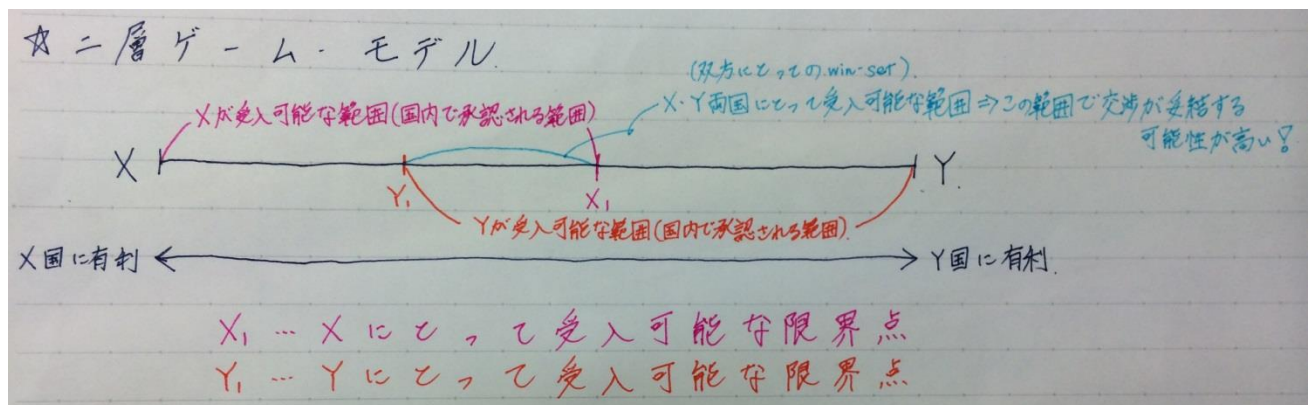 ☆二層ゲーム・モデル.
(双方にとっての.win-set).
Xが受入可能な範囲(国内で承認される範囲)
X・Y両国にとって受入可能な範囲⇒この範囲で交渉が妥結する
可能性が高い!
X
Y.
Y₁
X₁
Yが受入可能な範囲(国内で承認される範囲).
X国に有利
Y国に有利.
X₁…Xにとって受入可能な限界点
Y₁…Yにとって受入可能な限界点